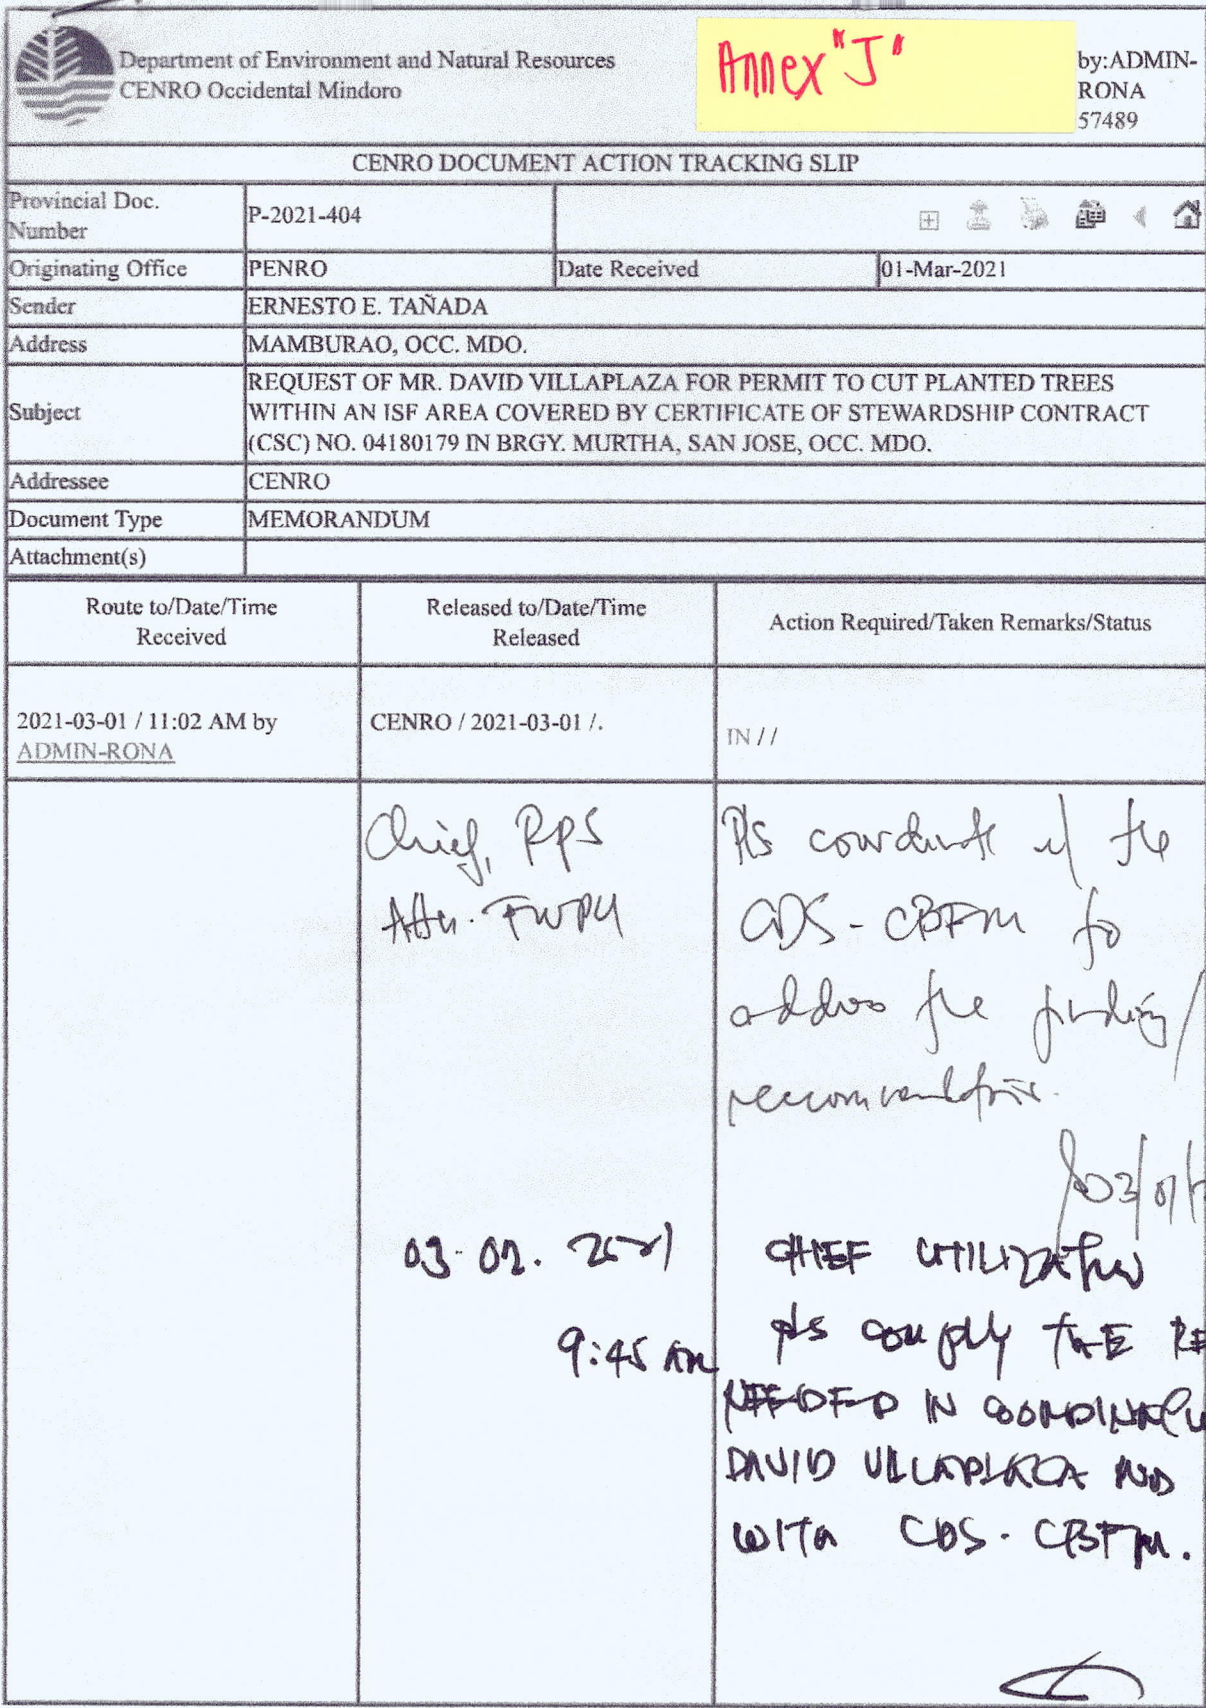 Department of Environment and Natural Resources
CENRO Occidental Mindoro
Annex "J"
by:ADMIN-
RONA
57489
CENRO DOCUMENT ACTION TRACKING SLIP
Provincial Doc.
Number
P-2021-404
Originating Office
PENRO
Date Received
01-Mar-2021
Sender
ERNESTO E. TAÑADA
Address
MAMBURAO, OCC. MDO.
Subject
REQUEST OF MR. DAVID VILLAPLAZA FOR PERMIT TO CUT PLANTED TREES
WITHIN AN ISF AREA COVERED BY CERTIFICATE OF STEWARDSHIP CONTRACT
(CSC) NO. 04180179 IN BRGY. MURTHA, SAN JOSE, OCC. MDO.
Addressee
CENRO
Document Type
MEMORANDUM
Attachment(s)
Route to/Date/Time
Received
Released to/Date/Time
Released
Action Required/Taken Remarks/Status
2021-03-01 / 11:02 AM by
ADMIN-RONA
CENRO / 2021-03-01 /.
IN / /
Chief, RPS
Attn. FWPU
Pls coordinate w/ the
CDS - CBFM to
address the finding/
recommendation.
03/01/
03-02. 2021
9:45 AM
CHIEF UTILIZATION
pls comply THE RE
NEEDED IN COORDINATI
DAVID VILLAPLAZA AND
WITH CDS - CBFM.